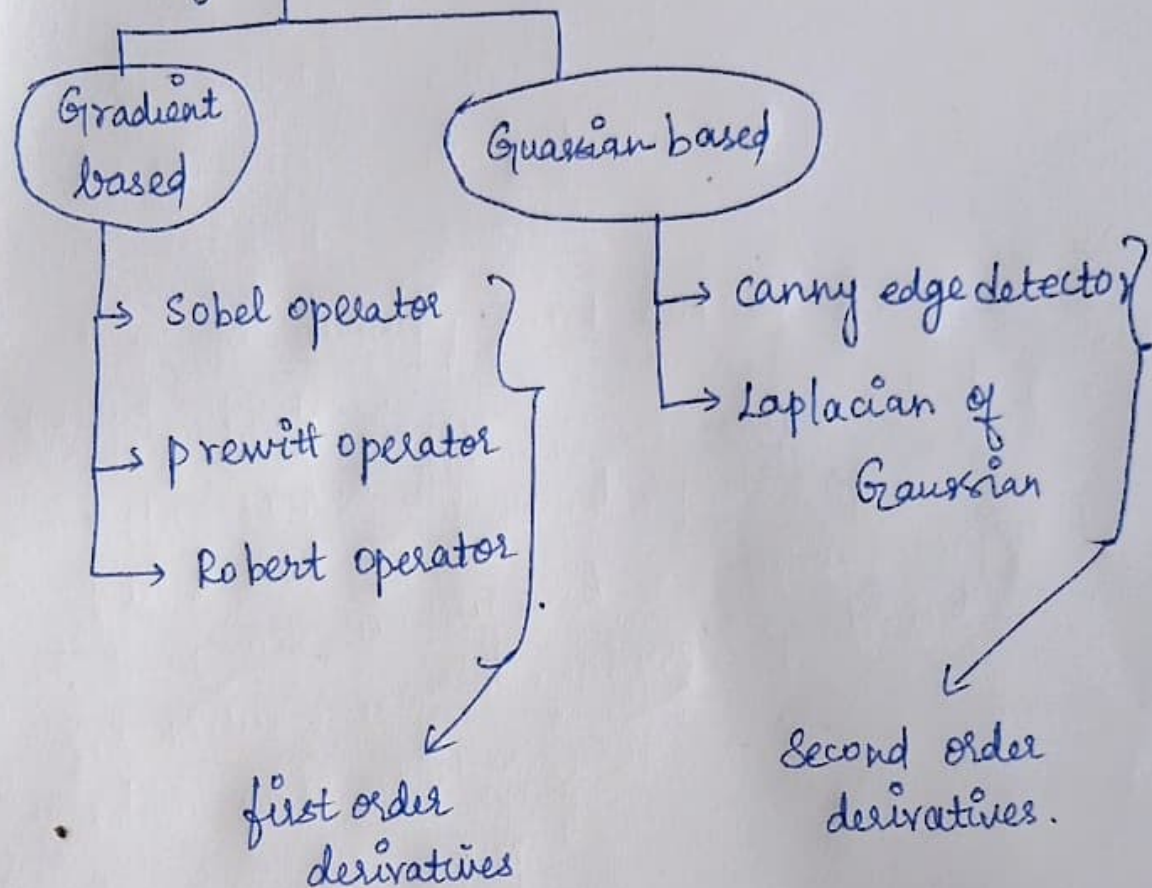 Gradient
based
Guassian based
Sobel operator
prewitt operator
Robert operator
first order
derivatives
canny edge detector
Laplacian of
Gaussian
Second order
derivatives.